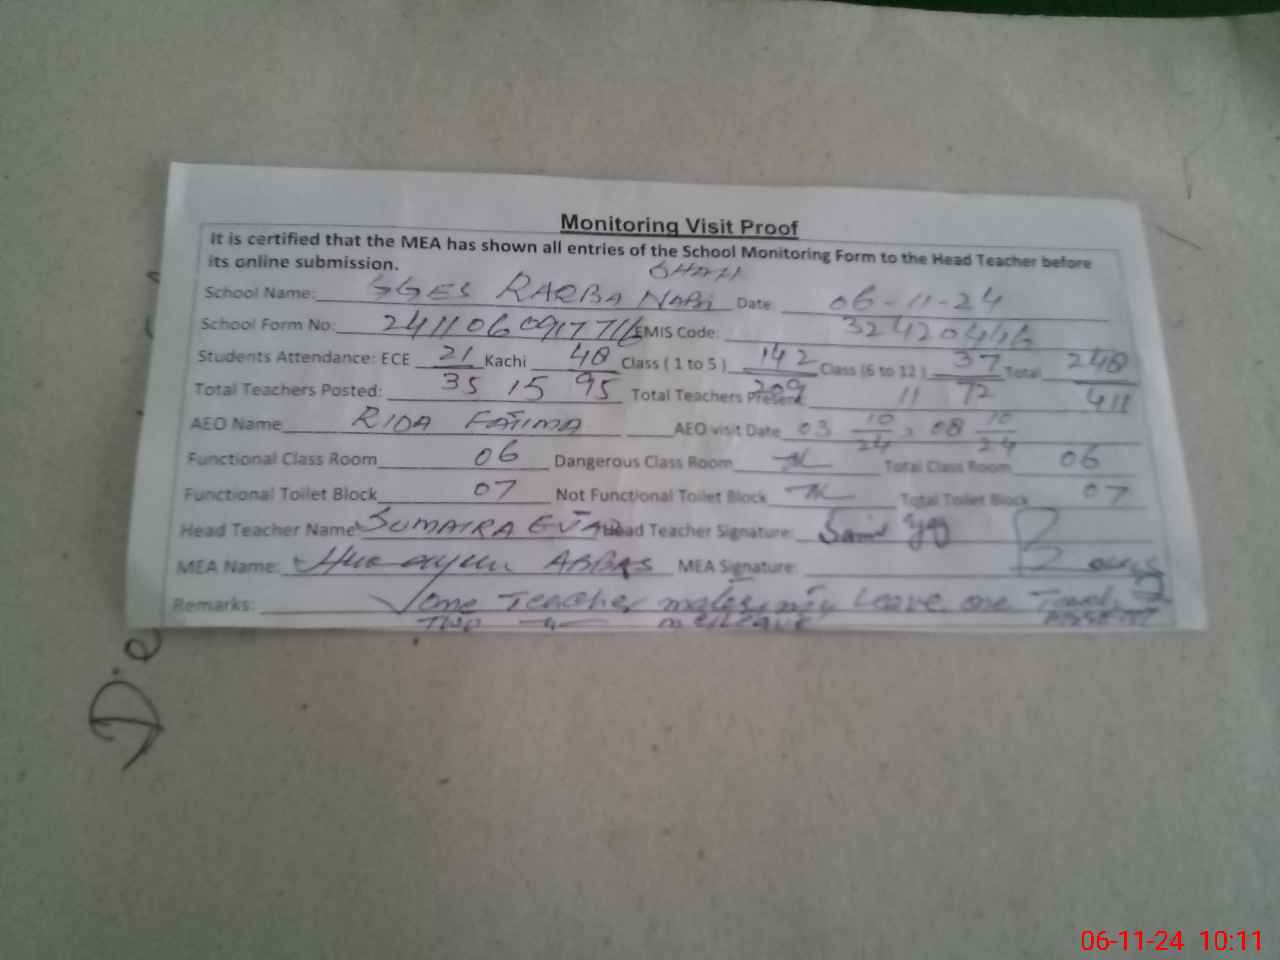 Monitoring Visit Proof
It is certified that the MEA has shown all entries of the School Monitoring Form to the Head Teacher before
its online submission.
School Name: GGES RAQBA NABI SHAH Date 06-11-24
School Form No: 24110609177116 EMIS Code: 32420446
Students Attendance: ECE 21 Kachi 48 Class ( 1 to 5 ) 142 Class (6 to 12 ) 37 Total 248
Total Teachers Posted: 35 15 95 Total Teachers Present 209 11 72 411
AEO Name RIDA FATIMA AEO visit Date 03 10/24, 08 10/24
Functional Class Room 06 Dangerous Class Room Total Class Room 06
Functional Toilet Block 07 Not Functional Toilet Block Total Toilet Block 07
Head Teacher Name SUMAIRA Head Teacher Signature:
MEA Name: ABBAS MEA Signature:
Remarks: one Teacher Leave one
06-11-24 10:11